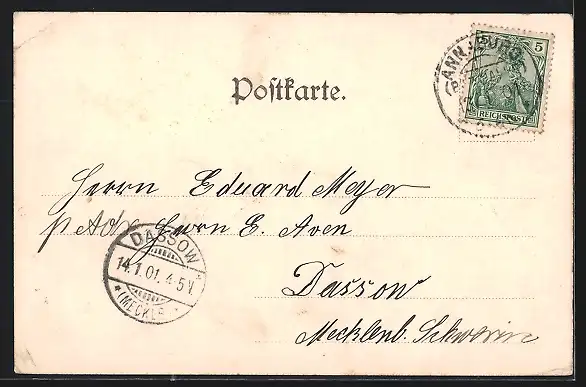 Postkarte.
5 5
REICHSPOST
Herrn Eduard Meyer
p Adr. Herrn E. Aven
DASSOW
14.1.01. 4-5 V.
* (MECKLB.) *
Dassow
Mecklenb. Schwerin